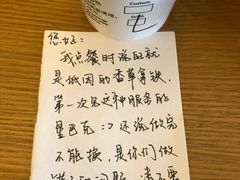 Custom
您好:
我点餐时说的就
是低因的香草拿铁,
第一次见这种服务的
星巴克 :) 还说做完
不能换,是你们做